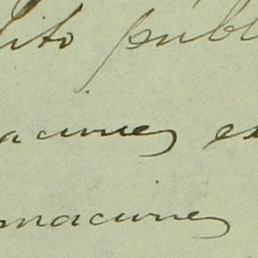 lito públ
aciones es
maciones